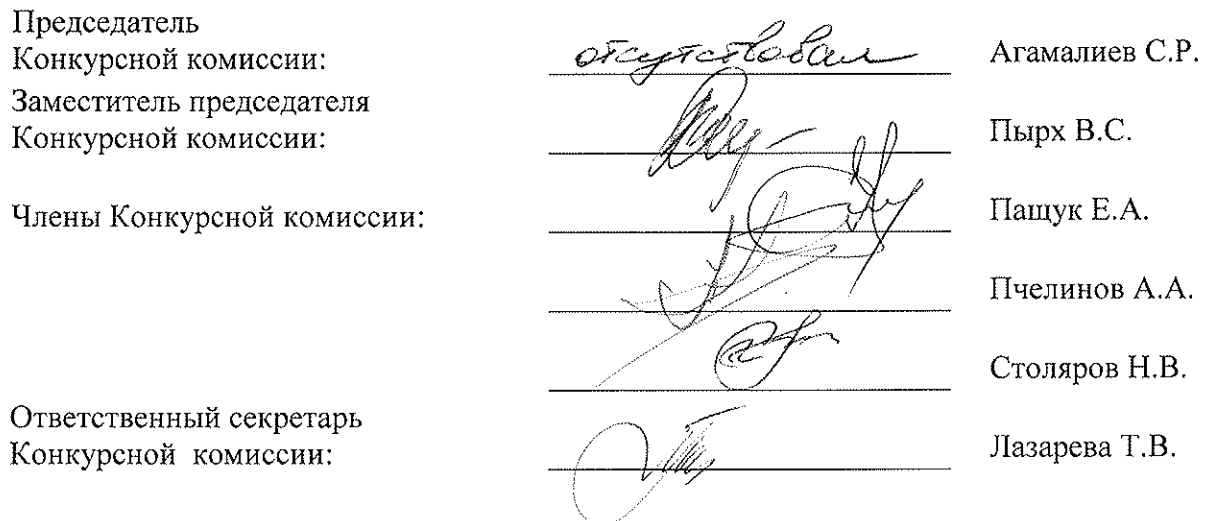 Председатель
Конкурсной комиссии: отсутствовал Агамалиев С.Р.
Заместитель председателя
Конкурсной комиссии: Пырх В.С.
Члены Конкурсной комиссии: Пащук Е.А.
Пчелинов А.А.
Столяров Н.В.
Ответственный секретарь
Конкурсной комиссии: Лазарева Т.В.